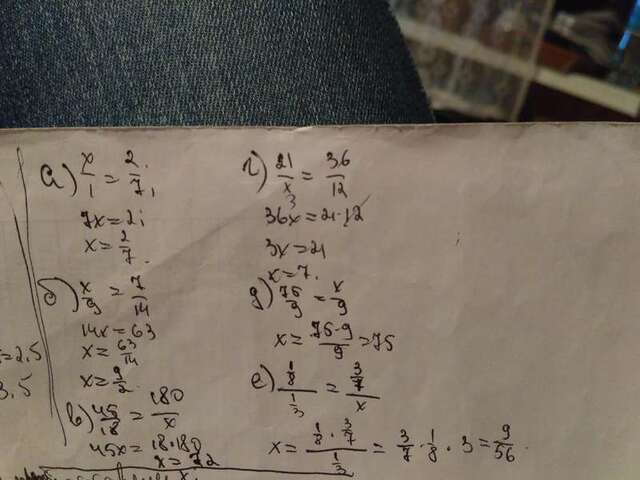 а) x/1 = 2/7;
7x = 2;
x = 2/7.
б) x/9 = 7/14
14x = 63
x = 63/14
x = 9/2.
в) 45/18 = 180/x
45x = 18·180
x = 72
г) 21/x = 36/12
3
36x = 21·12
3x = 21
x = 7.
д) 75/9 = x/9
x = 75·9/9 = 75
е) 1/8 / 1/3 = 3/7 / x
x = 1/8 · 3/7 / 1/3 = 3/7 · 1/8 · 3 = 9/56.
= 2.5
3.5